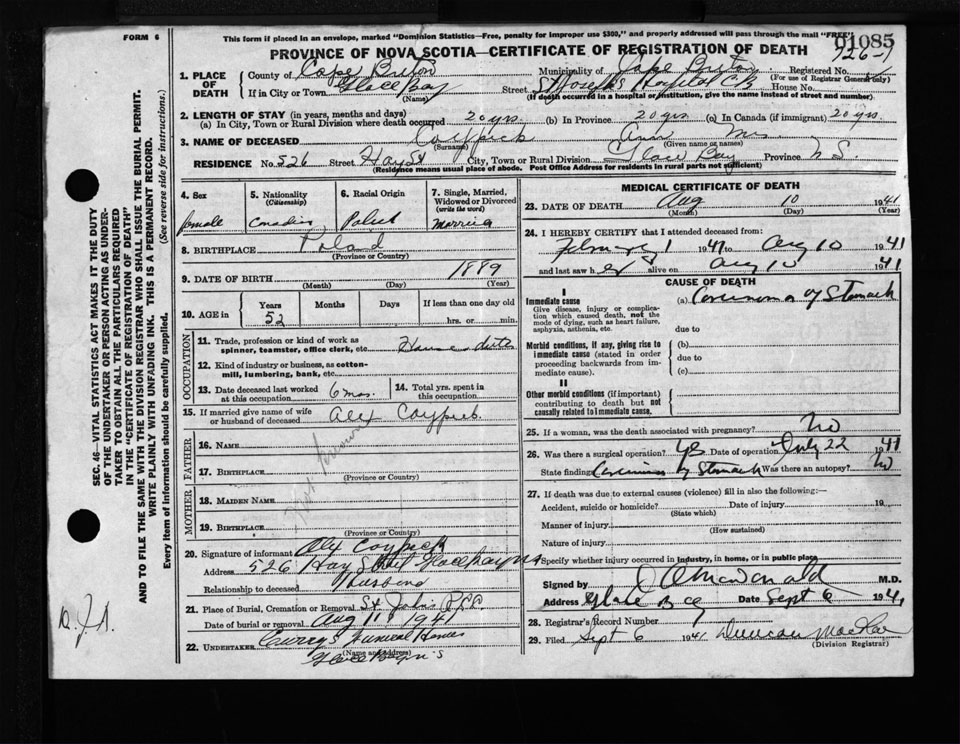 FORM 6
This form if placed in an envelope, marked "Dominion Statistics—Free, penalty for improper use $300," and properly addressed will pass through the mail "FREE"
01085
PROVINCE OF NOVA SCOTIA—CERTIFICATE OF REGISTRATION OF DEATH
926-1
1. PLACE OF DEATH
County of Cape Breton Municipality of Cape Breton Registered No.
(For use of Registrar General only)
If in City or Town Glace Bay Street St Joseph's Hospital House No.
(Name) (If death occurred in a hospital or institution, give the name instead of street and number)
2. LENGTH OF STAY (in years, months and days)
(a) In City, Town or Rural Division where death occurred 20 yrs. (b) In Province 20 yrs. (c) In Canada (if immigrant) 20 yrs.
3. NAME OF DECEASED Coypick Ann Mrs.
(Surname) (Given name or names)
RESIDENCE No. 526 Street Hay St City, Town or Rural Division Glace Bay Province N.S.
(Residence means usual place of abode. Post Office Address for residents in rural parts not sufficient)
4. Sex
female
5. Nationality
(Citizenship)
6. Racial Origin
7. Single, Married, Widowed or Divorced
(write the word)
Married
8. BIRTHPLACE Poland
(Province or Country)
9. DATE OF BIRTH 1889
(Month) (Day) (Year)
10. AGE in
Years
52
Months
Days
If less than one day old
hrs. or min.
OCCUPATION
11. Trade, profession or kind of work as spinner, teamster, office clerk, etc. House duties
12. Kind of industry or business, as cotton-mill, lumbering, bank, etc.
13. Date deceased last worked at this occupation 6 mos.
14. Total yrs. spent in this occupation
15. If married give name of wife or husband of deceased Alex Coypick
FATHER
16. NAME
17. BIRTHPLACE
(Province or Country)
MOTHER
18. MAIDEN NAME
19. BIRTHPLACE
(Province or Country)
Not known
20. Signature of informant Alex Coypick
Address 526 Hay Street Glace Bay N.S
Relationship to deceased Husband
21. Place of Burial, Cremation or Removal St. John's
Date of burial or removal Aug 11 1941
22. UNDERTAKER Curry's Funeral Home
(Name and Address)
Glace Bay N.S
MEDICAL CERTIFICATE OF DEATH
23. DATE OF DEATH Aug 10 1941
(Month) (Day) (Year)
24. I HEREBY CERTIFY that I attended deceased from:
February 1 1941 to Aug 10 1941
and last saw her alive on Aug 10 1941
CAUSE OF DEATH
I
Immediate cause
Give disease, injury or complication which caused death, not the mode of dying, such as heart failure, asphyxia, asthenia, etc.
(a) Carcinoma of Stomach
due to
Morbid conditions, if any, giving rise to immediate cause (stated in order proceeding backwards from immediate cause).
(b)
due to
(c)
II
Other morbid conditions (if important) contributing to death but not causally related to immediate cause.
25. If a woman, was the death associated with pregnancy? No
26. Was there a surgical operation? yes Date of operation July 22 1941
State finding Carcinoma of Stomach Was there an autopsy? No
27. If death was due to external causes (violence) fill in also the following:—
Accident, suicide or homicide? Date of injury 19
(State which)
Manner of injury
(How sustained)
Nature of injury
Specify whether injury occurred in industry, in home, or in public place
Signed by MacDonald M.D.
Address Glace Bay Date Sept 6 1941
28. Registrar's Record Number
29. Filed Sept 6 1941 Duncan
(Division Registrar)
SEC. 46—VITAL STATISTICS ACT MAKES IT THE DUTY
OF THE UNDERTAKER OR PERSON ACTING AS UNDER-
TAKER TO OBTAIN ALL THE PARTICULARS REQUIRED
IN THE "CERTIFICATE OF REGISTRATION OF DEATH"
AND TO FILE THE SAME WITH THE DIVISION REGISTRAR WHO SHALL ISSUE THE BURIAL PERMIT.
WRITE PLAINLY WITH UNFADING INK. THIS IS A PERMANENT RECORD.
Every item of information should be carefully supplied. (See reverse side for instructions.)